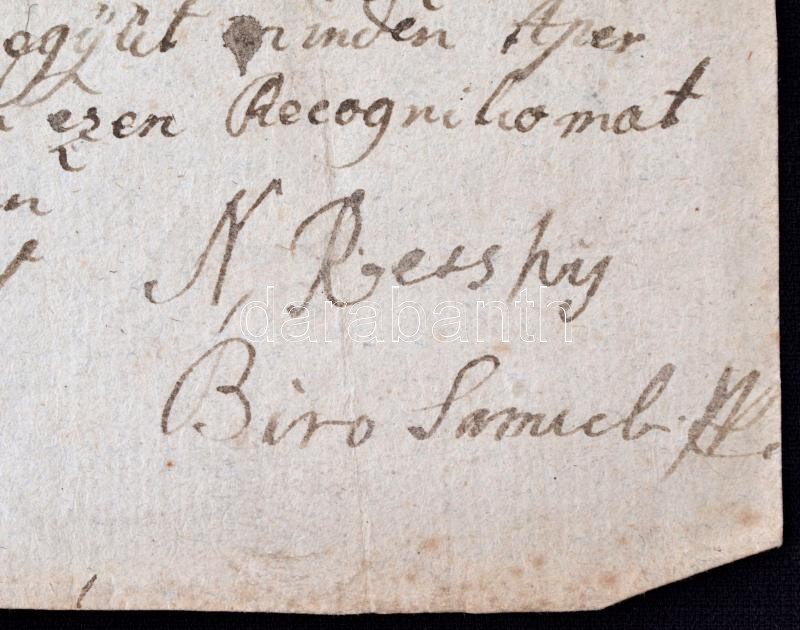 együtt minden Aper
ezen Recognitiomat
n
N, Retshy
Biro Samuel
darabanth